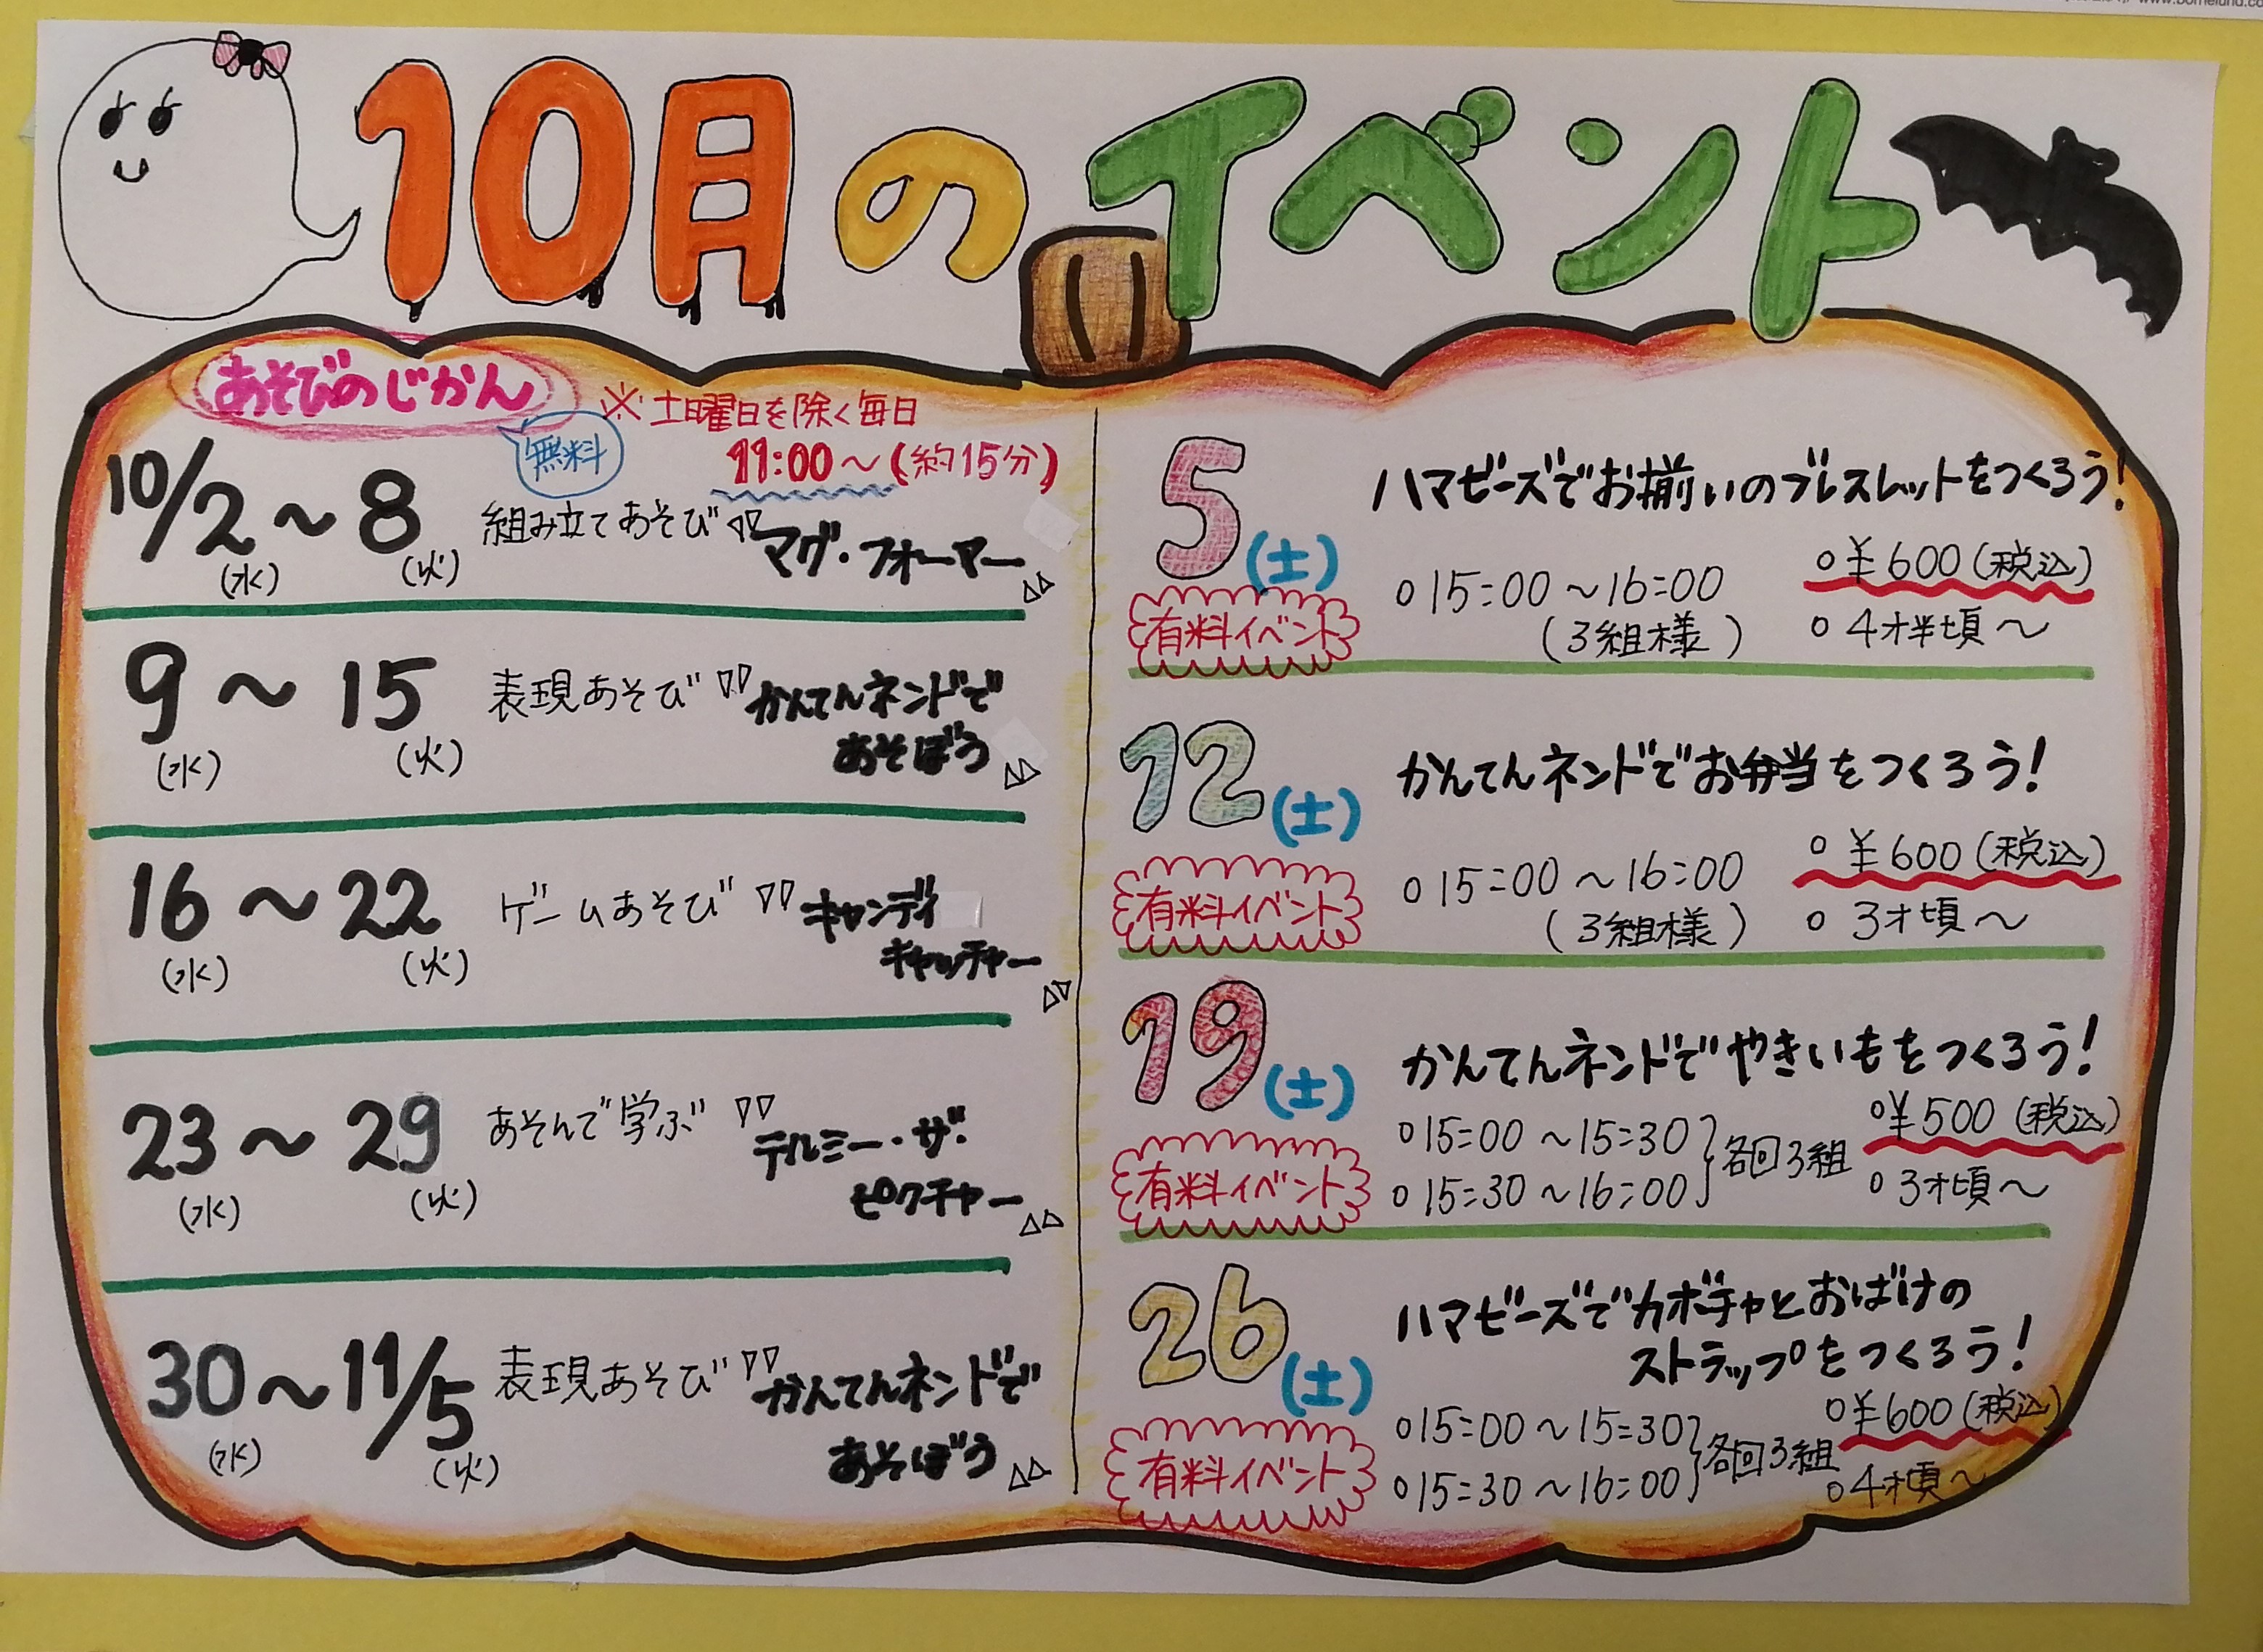 www.bornelund.co
10月のイベント
あそびのじかん
無料
※土曜日を除く毎日
11:00～(約15分)
10/2～8
(水) (火)
組み立てあそび
マグ・フォーマー
9～15
(水) (火)
表現あそび
かんてんネンドで
あそぼう
16～22
(水) (火)
ゲームあそび
キャンディ
キャッチャー
23～29
(水) (火)
あそんで学ぶ
テルミー・ザ・
ピクチャー
30～11/5
(水) (火)
表現あそび
かんてんネンドで
あそぼう
5(土)
有料イベント
ハマビーズでお揃いのブレスレットをつくろう!
○15:00～16:00
(3組様)
○¥600(税込)
○4才半頃～
12(土)
有料イベント
かんてんネンドでお弁当をつくろう!
○15:00～16:00
(3組様)
○¥600(税込)
○3才頃～
19(土)
有料イベント
かんてんネンドでやきいもをつくろう!
○15:00～15:30
○15:30～16:00
各回3組
○¥500(税込)
○3才頃～
26(土)
有料イベント
ハマビーズでカボチャとおばけの
ストラップをつくろう!
○15:00～15:30
○15:30～16:00
各回3組
○¥600(税込)
○4才頃～